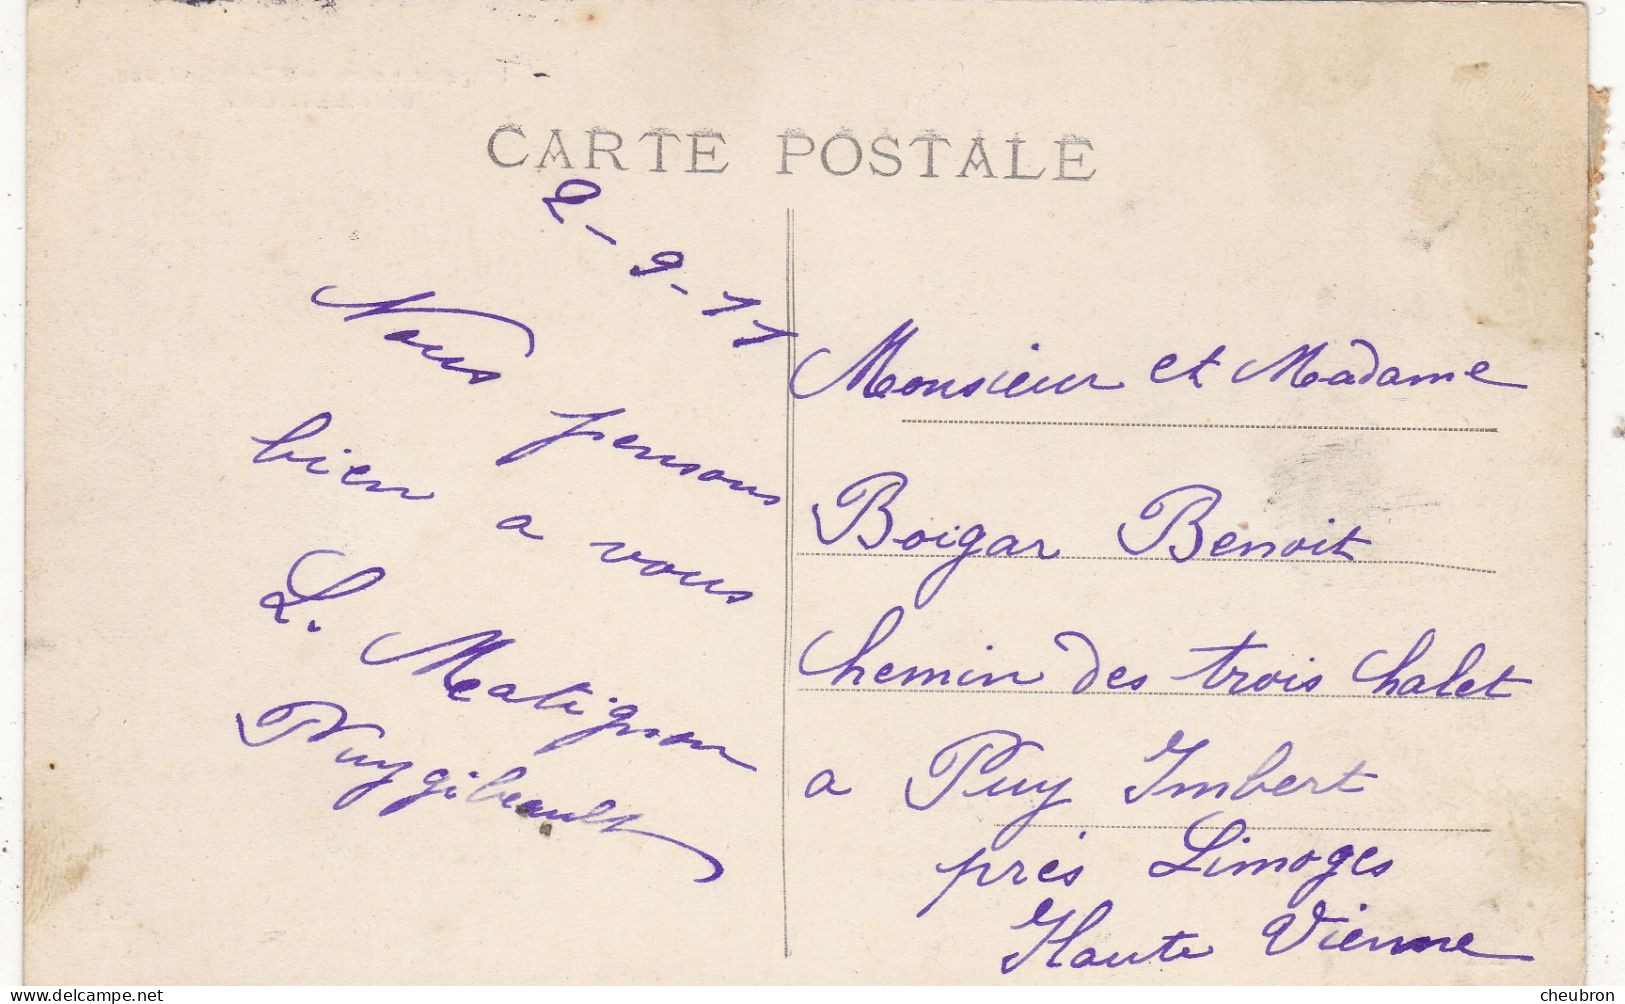 CARTE POSTALE
2-9-11
Nous pensons
bien a vous
L. Matignon
Puygibeault
Monsieur et Madame
Boigar Benoit
Chemin des trois Chalet
a Puy Imbert
près Limoges
Haute Vienne
© cheubron
delcampe.net